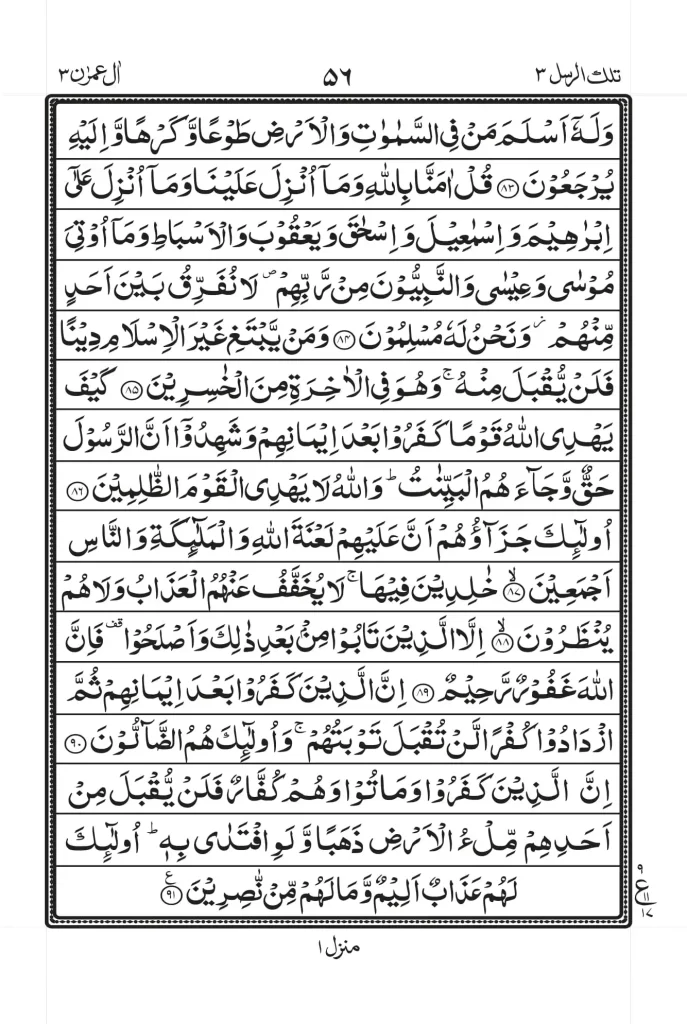 تلك الرسل ٣ ٥٦ اٰل عمرٰن ٣
وَلَهٗۤ اَسْلَمَ مَنْ فِی السَّمٰوٰتِ وَالْاَرْضِ طَوْعًا وَّكَرْهًا وَّاِلَیْهِ
یُرْجَعُوْنَ ﴿٨٣﴾ قُلْ اٰمَنَّا بِاللّٰهِ وَمَاۤ اُنْزِلَ عَلَیْنَا وَمَاۤ اُنْزِلَ عَلٰۤی
اِبْرٰهِیْمَ وَاِسْمٰعِیْلَ وَاِسْحٰقَ وَیَعْقُوْبَ وَالْاَسْبَاطِ وَمَاۤ اُوْتِیَ
مُوْسٰی وَعِیْسٰی وَالنَّبِیُّوْنَ مِنْ رَّبِّهِمْ ۪ لَا نُفَرِّقُ بَیْنَ اَحَدٍ
مِّنْهُمْ ؗ وَنَحْنُ لَهٗ مُسْلِمُوْنَ ﴿٨٤﴾ وَمَنْ یَّبْتَغِ غَیْرَ الْاِسْلَامِ دِیْنًا
فَلَنْ یُّقْبَلَ مِنْهُ ۚ وَهُوَ فِی الْاٰخِرَةِ مِنَ الْخٰسِرِیْنَ ﴿٨٥﴾ كَیْفَ
یَهْدِی اللّٰهُ قَوْمًا كَفَرُوْا بَعْدَ اِیْمَانِهِمْ وَشَهِدُوْۤا اَنَّ الرَّسُوْلَ
حَقٌّ وَّجَآءَهُمُ الْبَیِّنٰتُ ؕ وَاللّٰهُ لَا یَهْدِی الْقَوْمَ الظّٰلِمِیْنَ ﴿٨٦﴾
اُولٰٓئِكَ جَزَآؤُهُمْ اَنَّ عَلَیْهِمْ لَعْنَةَ اللّٰهِ وَالْمَلٰٓئِكَةِ وَالنَّاسِ
اَجْمَعِیْنَ ﴿٨٧﴾ ۙ خٰلِدِیْنَ فِیْهَا ۚ لَا یُخَفَّفُ عَنْهُمُ الْعَذَابُ وَلَا هُمْ
یُنْظَرُوْنَ ﴿٨٨﴾ ۙ اِلَّا الَّذِیْنَ تَابُوْا مِنْۢ بَعْدِ ذٰلِكَ وَاَصْلَحُوْا ۫ فَاِنَّ
اللّٰهَ غَفُوْرٌ رَّحِیْمٌ ﴿٨٩﴾ اِنَّ الَّذِیْنَ كَفَرُوْا بَعْدَ اِیْمَانِهِمْ ثُمَّ
ازْدَادُوْا كُفْرًا لَّنْ تُقْبَلَ تَوْبَتُهُمْ ۚ وَاُولٰٓئِكَ هُمُ الضَّآلُّوْنَ ﴿٩٠﴾
اِنَّ الَّذِیْنَ كَفَرُوْا وَمَاتُوْا وَهُمْ كُفَّارٌ فَلَنْ یُّقْبَلَ مِنْ
اَحَدِهِمْ مِّلْءُ الْاَرْضِ ذَهَبًا وَّلَوِ افْتَدٰی بِهٖ ؕ اُولٰٓئِكَ
لَهُمْ عَذَابٌ اَلِیْمٌ وَّمَا لَهُمْ مِّنْ نّٰصِرِیْنَ ﴿٩١﴾ ع
٩
ع ١١
١٧
منزل ١